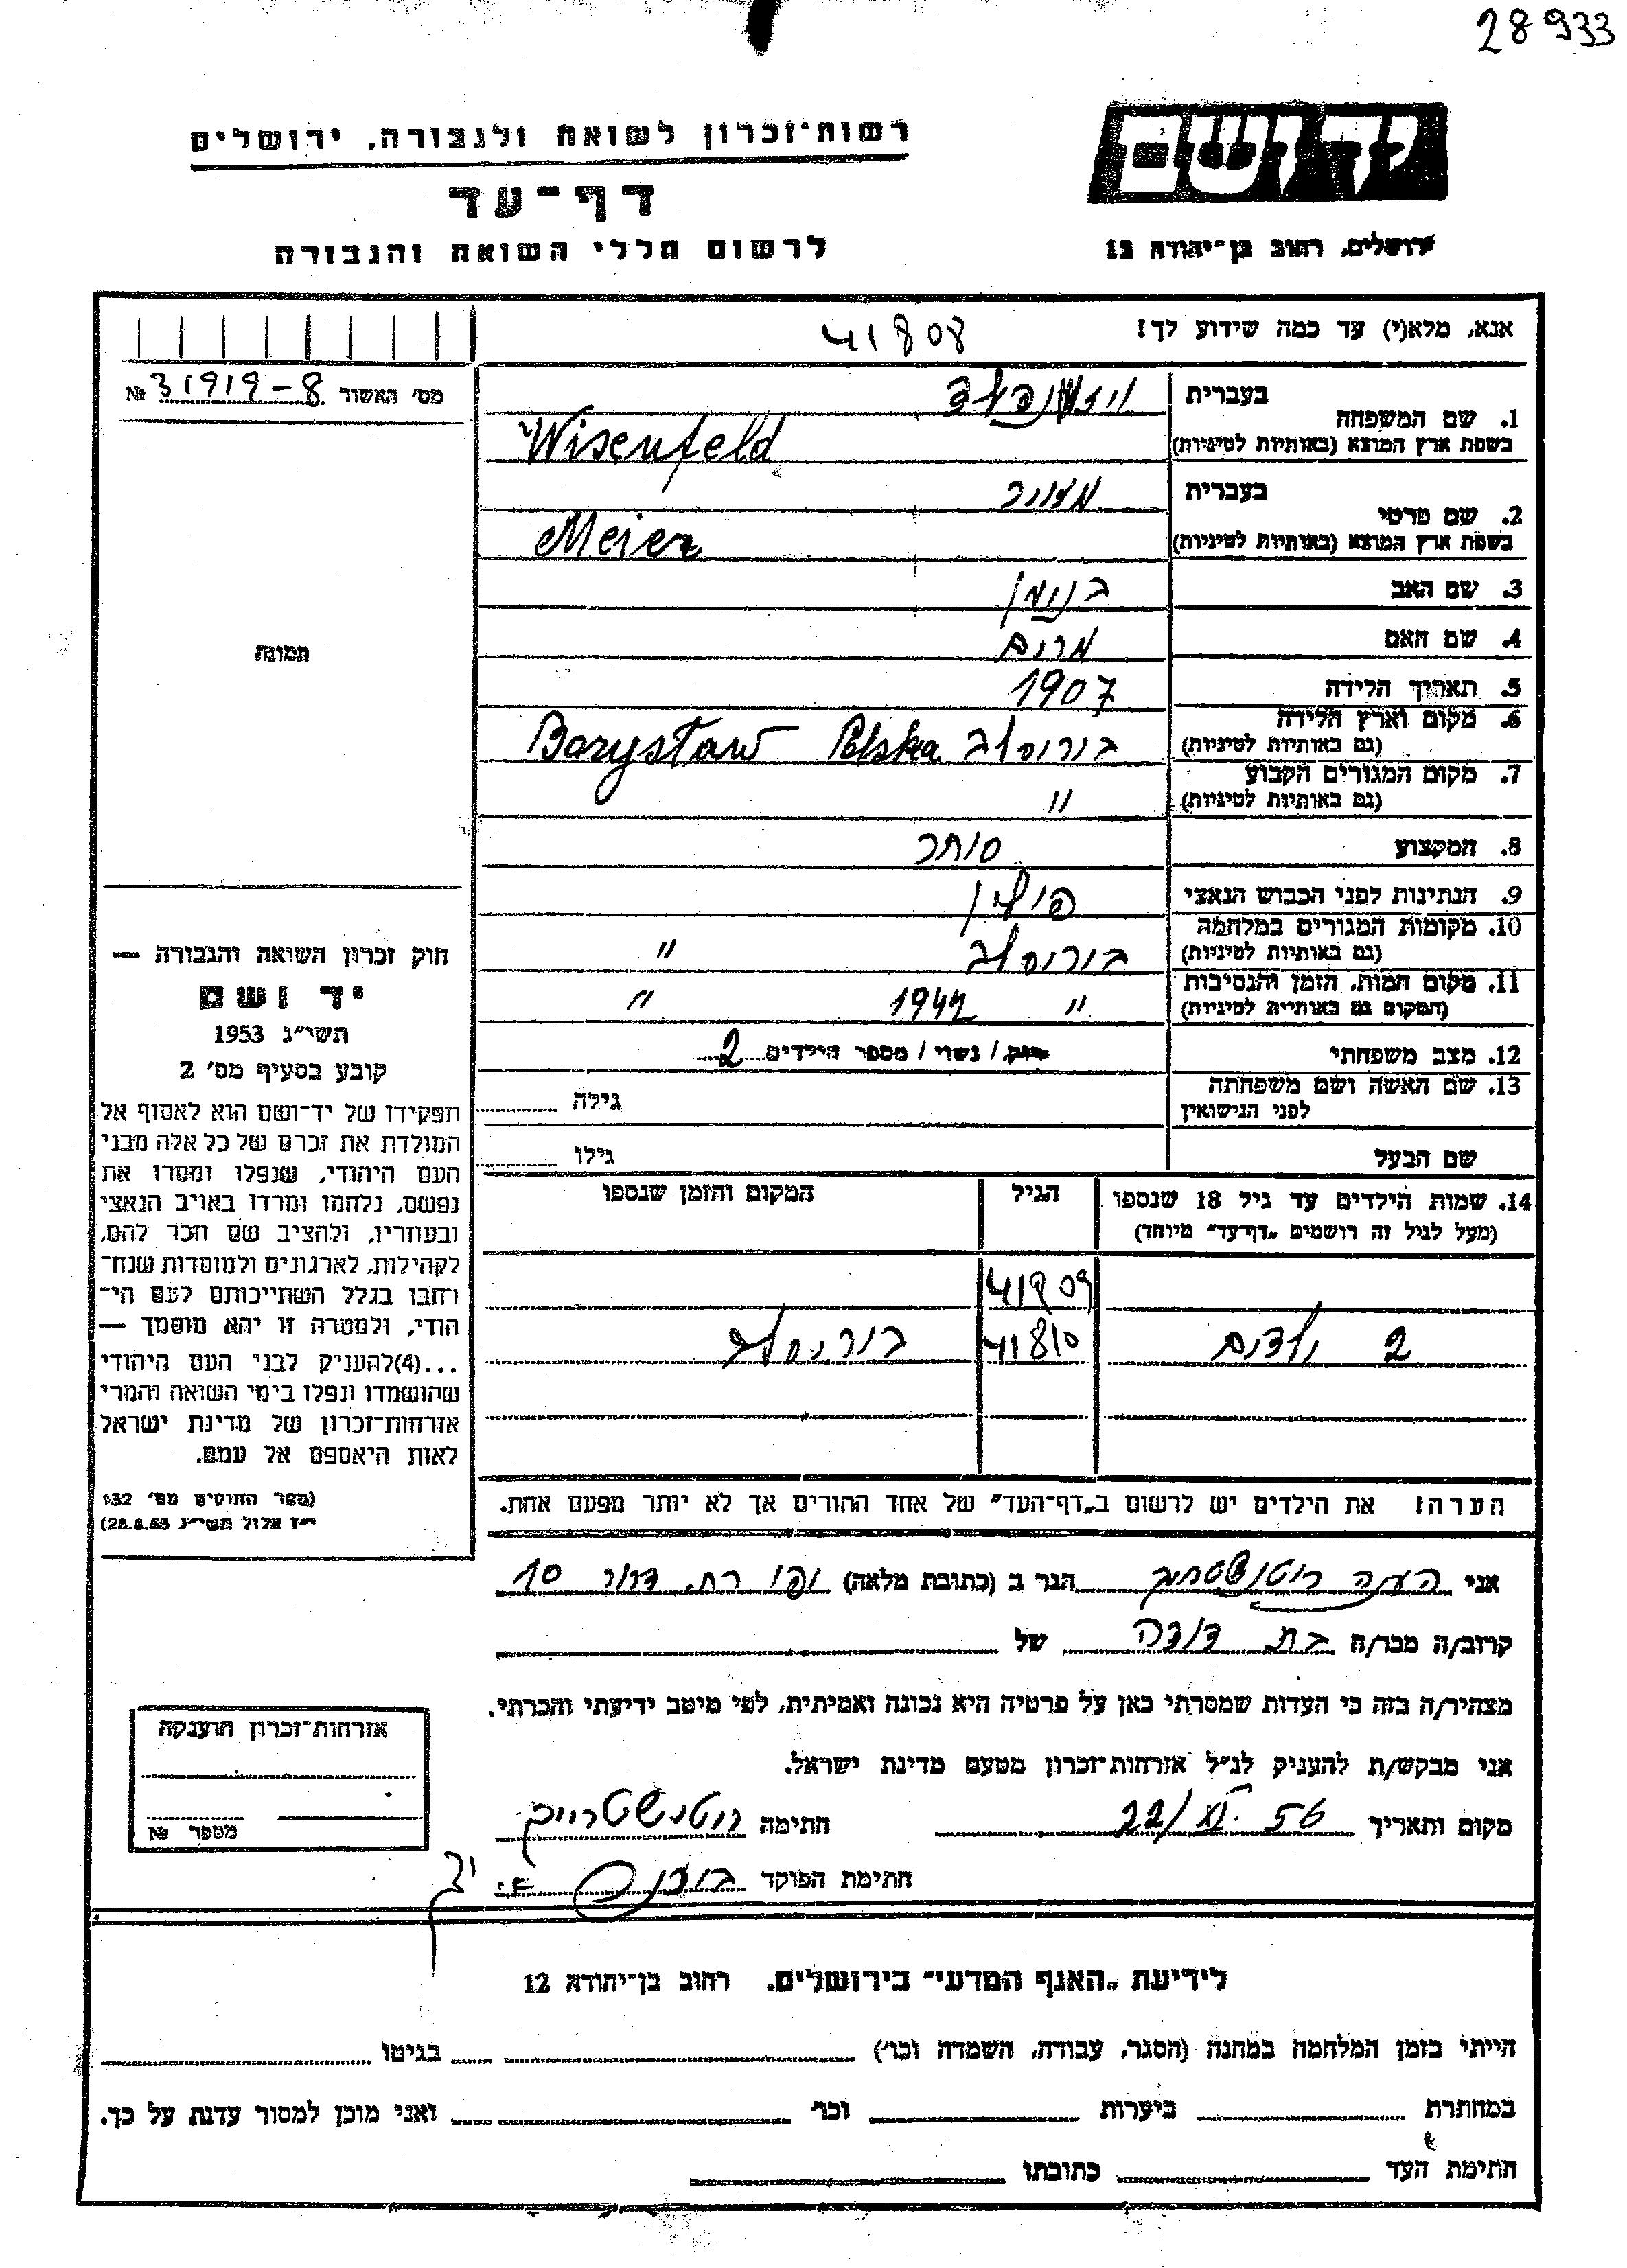 28933
יד ושם
רשות־זכרון לשואה ולגבורה, ירושלים
דף־עד
לרשום חללי השואה והגבורה
ירושלים, רחוב בן־יהודה 12
אנא, מלא(י) עד כמה שידוע לך! 41808
מס׳ האשור 31919-8 №
1. שם המשפחה
בעברית ויזנפלד
בשפת ארץ המוצא (באותיות לטיניות) Wisenfeld
2. שם פרטי
בעברית מאיר
בשפת ארץ המוצא (באותיות לטיניות) Meier
3. שם האב בנימן
4. שם האם מרים
5. תאריך הלידה 1907
6. מקום וארץ הלידה
(גם באותיות לטיניות) בוריסלב Polska Borysław
7. מקום המגורים הקבוע
(גם באותיות לטיניות) "
8. המקצוע סוחר
9. הנתינות לפני הכבוש הנאצי פולין
10. מקומות המגורים במלחמה
(גם באותיות לטיניות) בוריסלב "
11. מקום המות, הזמן והנסיבות
(המקום גם באותיות לטיניות) " 1942 "
12. מצב משפחתי רוק / נשוי / מספר הילדים 2
13. שם האשה ושם משפחתה
לפני הנישואין גילה
שם הבעל גילו
14. שמות הילדים עד גיל 18 שנספו הגיל המקום והזמן שנספו
(מעל לגיל זה רושמים „דף־עד" מיוחד)
41809
2 ילדים 41810 בוריסלב
הערה! את הילדים יש לרשום ב„דף־העד" של אחד ההורים אך לא יותר מפעם אחת.
תמונה
חוק זכרון השואה והגבורה —
יד ושם
תשי״ג 1953
קובע בסעיף מס׳ 2
תפקידו של יד־ושם הוא לאסוף אל
המולדת את זכרם של כל אלה מבני
העם היהודי, שנפלו ומסרו את
נפשם, נלחמו ומרדו באויב הנאצי
ובעוזריו, ולהציב שם וזכר להם,
לקהילות, לארגונים ולמוסדות שנח־
רבו בגלל השתייכותם לעם הי־
הודי, ולמטרה זו יהא מוסמך —
...(4)להעניק לבני העם היהודי
שהושמדו ונפלו בימי השואה והמרי
אזרחות־זכרון של מדינת ישראל
לאות היאספם אל עמם.
(ספר החוקים מס׳ 132
י״ז אלול תשי״ג 28.8.53)
אני רוטנשטרייך הגר ב (כתובת מלאה) יפו רח. דרור 10
קרוב/ה מכר/ה בת דודה של
מצהיר/ה בזה כי העדות שמסרתי כאן על פרטיה היא נכונה ואמיתית, לפי מיטב ידיעתי והכרתי.
אני מבקש/ת להעניק לנ״ל אזרחות־זכרון מטעם מדינת ישראל.
מקום ותאריך 22/ 56 חתימה רוטנשטרייך
חתימת הפוקד
אזרחות־זכרון הוענקה
מספר №
לידיעת „האגף המדעי" בירושלים, רחוב בן־יהודה 12
הייתי בזמן המלחמה במחנה (הסגר, עבודה, השמדה וכו׳) בגיטו
במחתרת ביערות וכו׳ ואני מוכן למסור עדות על כך.
חתימת העד כתובתו